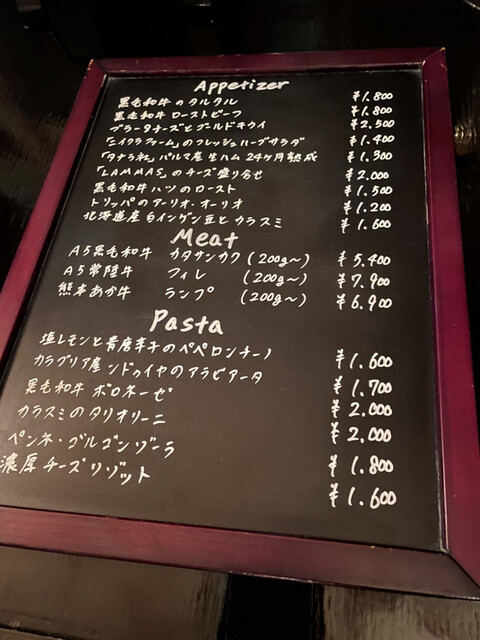 Appetizer
黒毛和牛のタルタル ¥1.800
黒毛和牛 ローストビーフ ¥1.800
ブラータチーズとゴールドキウイ ¥2.500
「エイクラファーム」のフレッシュハーブサラダ ¥1.400
「タナラ社」パルマ産生ハム 24ヶ月熟成 ¥1.500
「LAMMAS」のチーズ盛り合せ ¥2.000
黒毛和牛ハツのロースト ¥1.500
トリッパのアーリオ・オーリオ ¥1.200
北海道産白インゲン豆と カラスミ ¥1.600
Meat
A5黒毛和牛 カタサンカク (200g〜) ¥5.400
A5常陸牛 フィレ (200g〜) ¥7.900
熊本あか牛 ランプ (200g〜) ¥6.900
Pasta
塩レモンと青唐辛子のペペロンチーノ ¥1.600
カラブリア産 ンドゥイヤのアラビアータ ¥1.700
黒毛和牛 ボロネーゼ ¥2.000
カラスミのタリオリーニ ¥2.000
ペンネ・ゴルゴンゾーラ ¥1.800
濃厚チーズリゾット ¥1.600